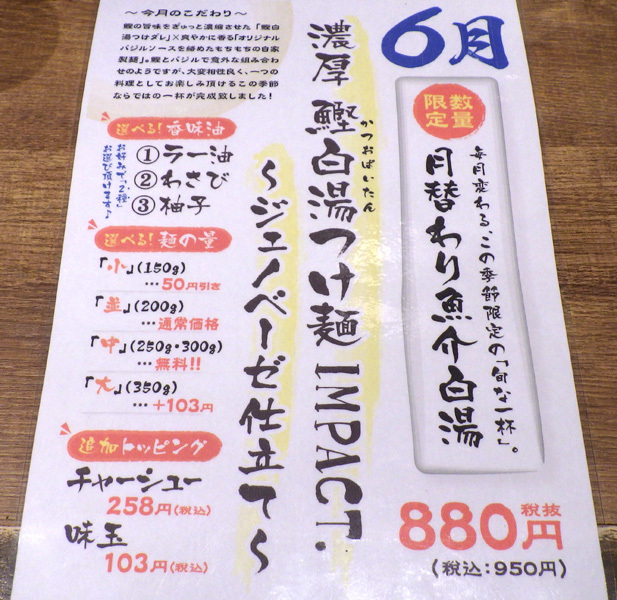 6月
数量
限定
毎月変わる、この季節限定の「旬な一杯」。
月替わり魚介白湯
880円
税抜
(税込:950円)
濃厚 鰹白湯つけ麺 IMPACT.
かつおぱいたん
～ジェノベーゼ仕立て～
～今月のこだわり～
鰹の旨味をぎゅっと濃縮させた「鰹白
湯つけダレ」×爽やかに香る「オリジナル
バジルソースを絡めたもちもちの自家
製麺」。鰹とバジルで意外な組み合わ
せのようですが、大変相性良く、一つの
料理としてお楽しみ頂けるこの季節
ならではの一杯が完成致しました!
選べる!香味油
①ラー油
②わさび
③柚子
お好みで「2種」
お選び頂けます♪
選べる!麺の量
「小」(150g)
…50円引き
「並」(200g)
…通常価格
「中」(250g・300g)
…無料!!
「大」(350g)
…+103円
追加トッピング
チャーシュー
258円(税込)
味玉
103円(税込)